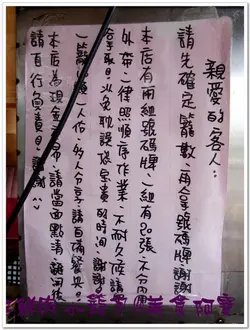 親愛的客人：
請先確定籠數，再拿號碼牌謝謝
本店有兩組號碼牌，一組有20張，不分內
外帶，一律照順序作業，不耐久候請
勿取，以免耽誤您寶貴的時間，謝謝！
一籠一人份，多人分享請自備餐具。
本店為現金交易，請當面點清，離開後
請自行負責，謝謝